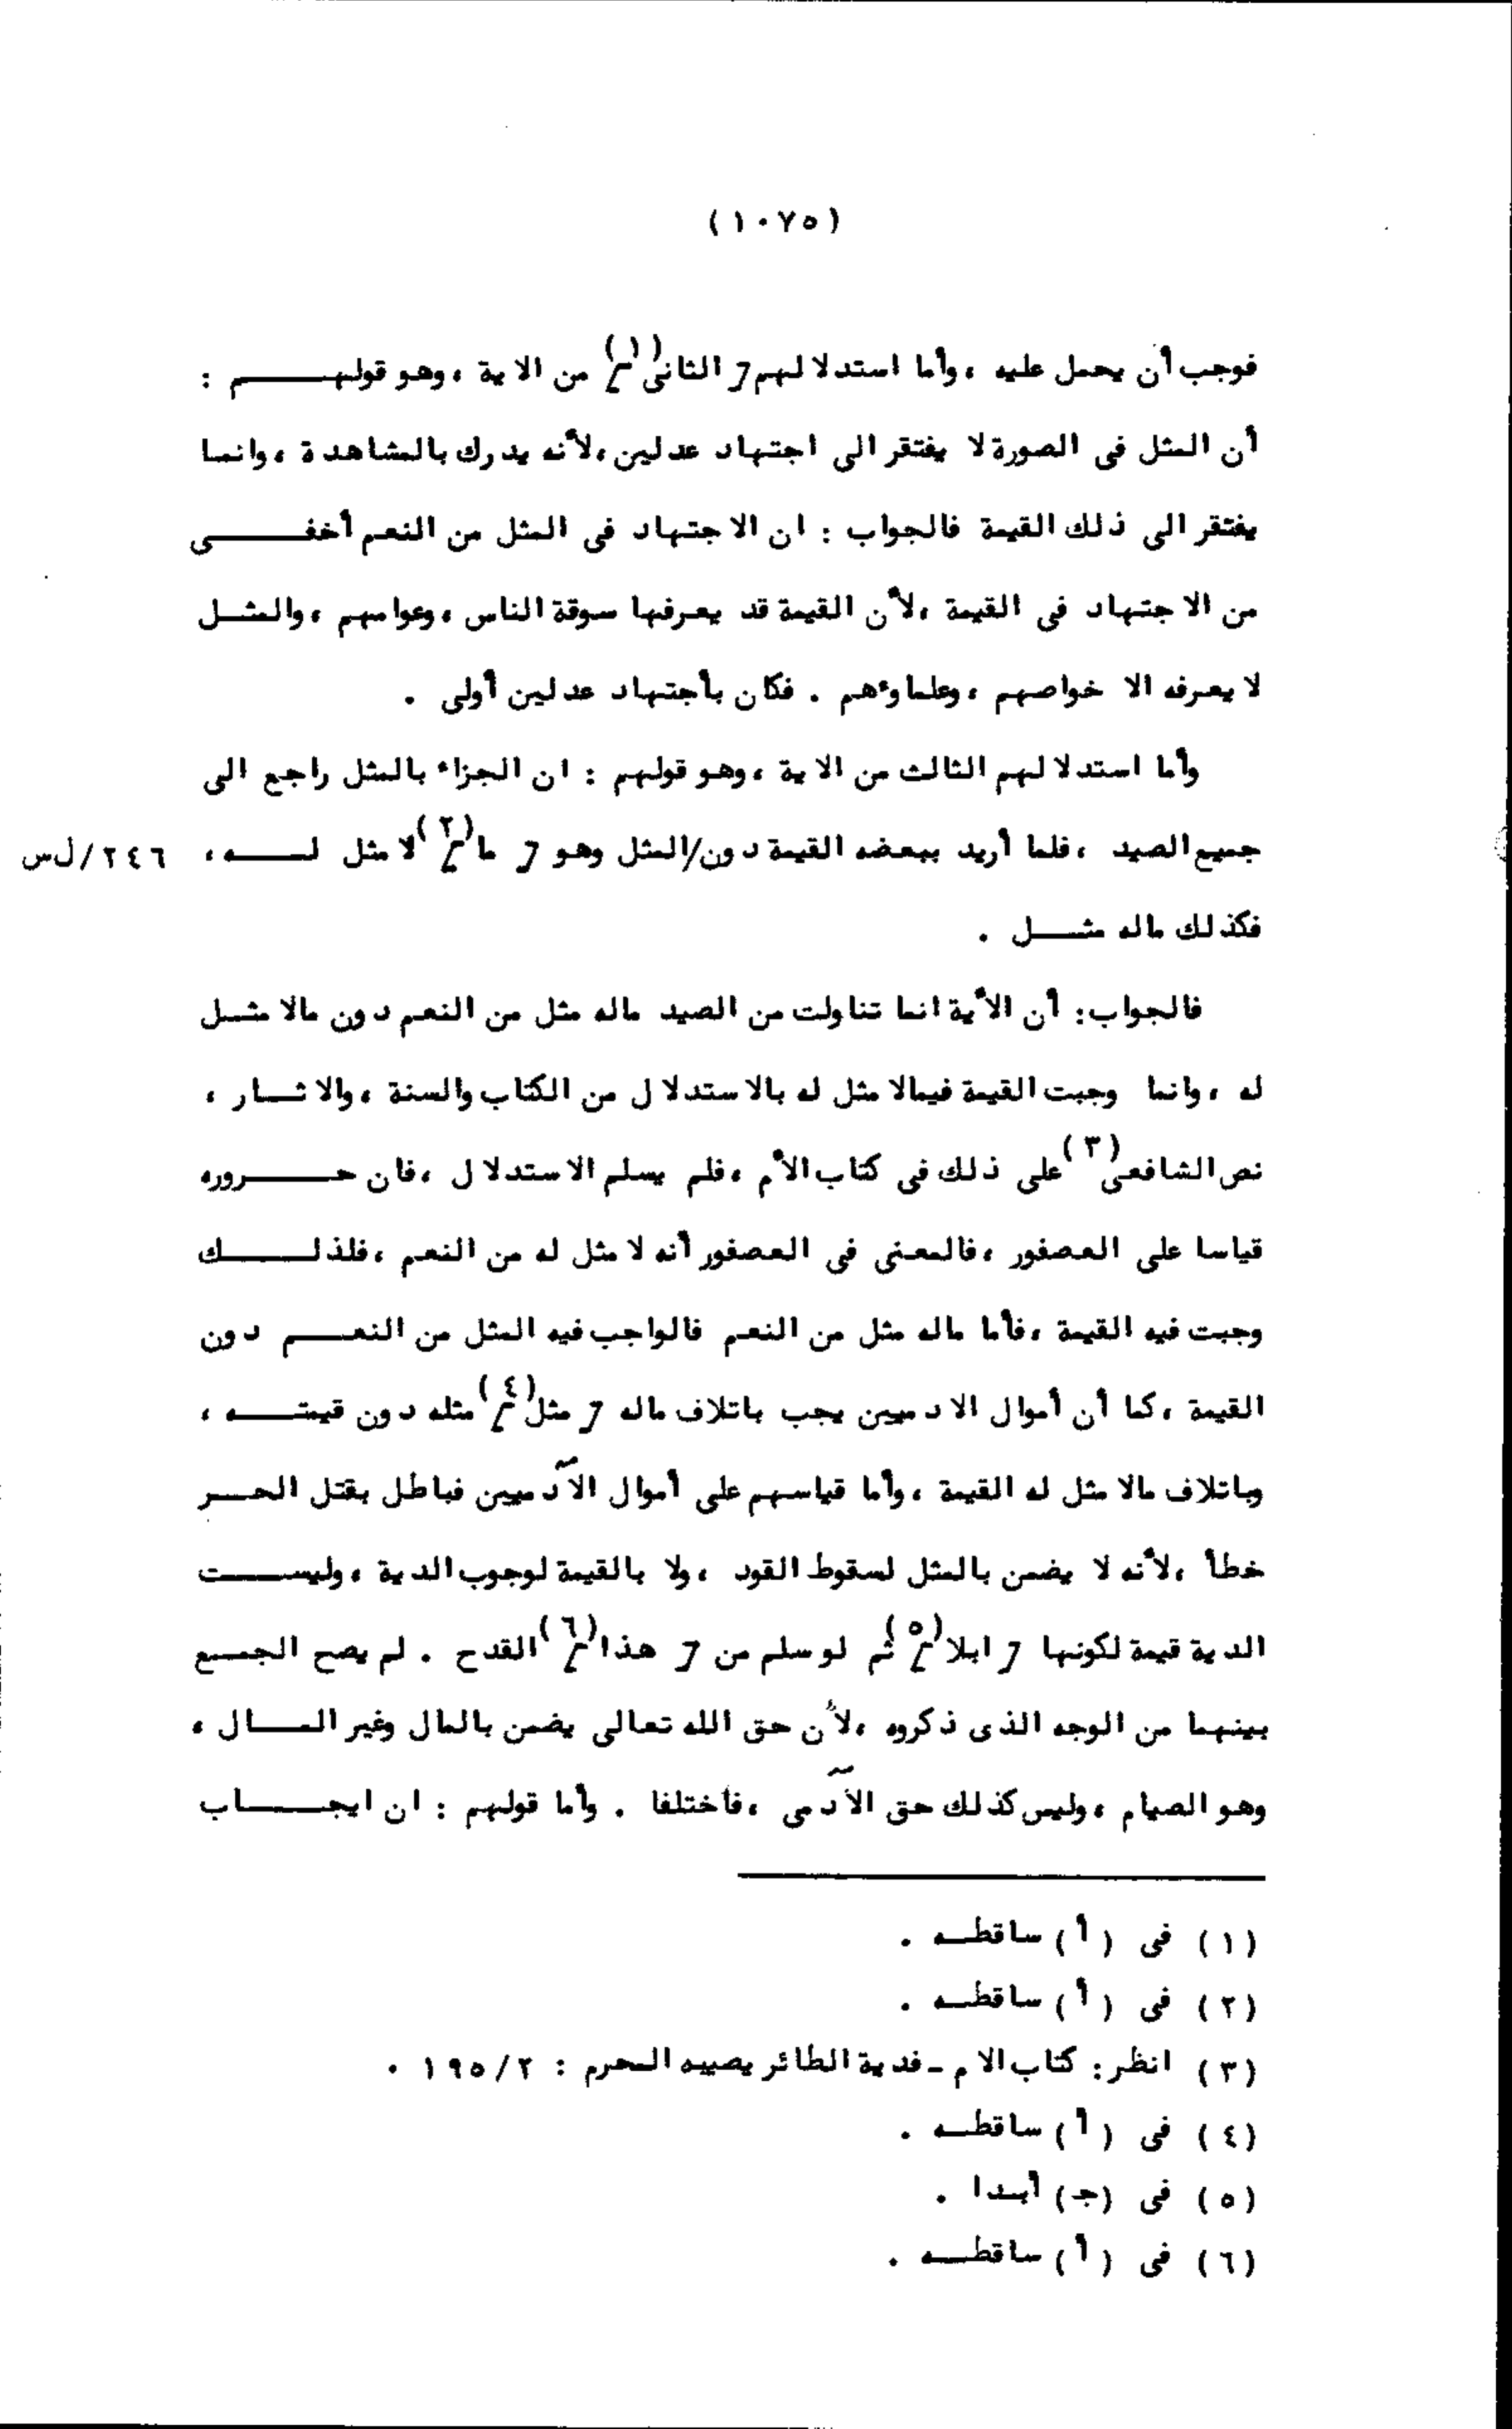 (١٠٧٥)
فوجب أن يحمل عليه ، وأما استدلالهم [ الثانى ](١) من الاية ، وهو قولهم :
أن المثل فى الصورة لا يفتقر الى اجتهاد عدلين ، لأنه يدرك بالمشاهدة ، وانما
يفتقر الى ذلك القيمة فالجواب : ان الاجتهاد فى المثل من النعم أخفى
من الاجتهاد فى القيمة ، لأن القيمة قد يعرفها سوقة الناس ، وعوامهم ، والمثل
لا يعرفه الا خواصهم ، وعلماؤهم . فكان بأجتهاد عدلين أولى .
وأما استدلالهم الثالث من الاية ، وهو قولهم : ان الجزاء بالمثل راجع الى
جميع الصيد ، فلما أريد ببعضه القيمة دون/المثل وهو [ ما ](٢) لا مثل له ، ٢٤٦/ل س
فكذلك ماله مثل .
فالجواب : أن الأية انما تناولت من الصيد ماله مثل من النعم دون مالا مثل
له ، وانما وجبت القيمة فيمالا مثل له بالاستدلال من الكتاب والسنة ، والاثار ،
نص الشافعى(٣) على ذلك فى كتاب الأم ، فلم يسلم الاستدلال ، فان حروره
قياسا على العصفور ، فالمعنى فى العصفور أنه لا مثل له من النعم ، فلذلك
وجبت فيه القيمة ، فأما ماله مثل من النعم فالواجب فيه المثل من النعم دون
القيمة ، كما أن أموال الادميين يجب باتلاف ماله [ مثل ](٤) مثله دون قيمته ،
وباتلاف مالا مثل له القيمة ، وأما قياسهم على أموال الآدميين فباطل بقتل الحر
خطأ ، لأنه لا يضمن بالمثل لسقوط القود ، ولا بالقيمة لوجوب الدية ، وليست
الدية قيمة لكونها [ ابلا ](٥) ثم لو سلم من [ هذا ](٦) القدح . لم يصح الجمع
بينهما من الوجه الذى ذكروه ، لأن حق الله تعالى يضمن بالمال وغير المال ،
وهو الصيام ، وليس كذلك حق الآدمى ، فأختلفا . وأما قولهم : ان ايجاب
(١) فى (أ) ساقطه .
(٢) فى (أ) ساقطه .
(٣) انظر : كتاب الام - فدية الطائر يصيبه المحرم : ١٩٥/٢ .
(٤) فى (أ) ساقطه .
(٥) فى (ج) أبدا .
(٦) فى (أ) ساقطه .